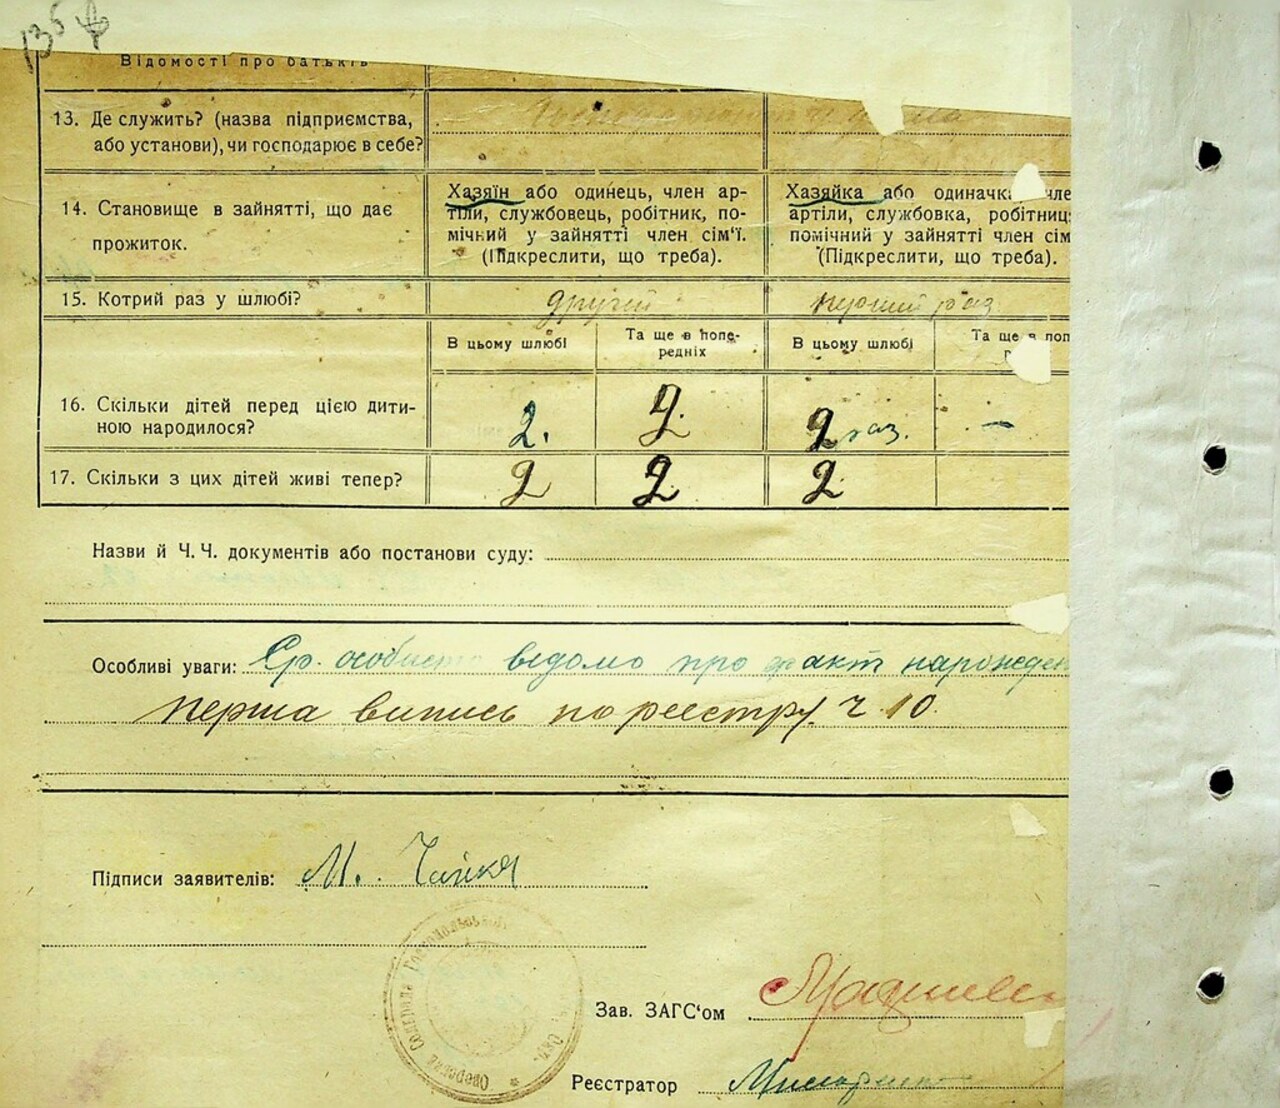 135
Відомості про батьків
13. Де служить? (назва підприємства,
або установи), чи господарює в себе?
14. Становище в зайнятті, що дає
прожиток.
Хазяїн або одинець, член ар-
тіли, службовець, робітник, по-
мічний у зайнятті член сім'ї.
(Підкреслити, що треба).
Хазяйка або одиначка чле
артіли, службовка, робітниц
помічний у зайнятті член сім
(Підкреслити, що треба).
15. Котрий раз у шлюбі?
другий
перший раз
В цьому шлюбі
Та ще в попе-
редніх
В цьому шлюбі
Та ще в поп
16. Скільки дітей перед цією дити-
ною народилося?
2. 2. 2 раз. -
17. Скільки з цих дітей живі тепер?
2 2 2
Назви й Ч. Ч. документів або постанови суду:
Особливі уваги: особисто відомо про факт нарожден
перша випись по реєстру ч 10.
Підписи заявителів: М. Чайка
Зав. ЗАГС'ом
Реєстратор